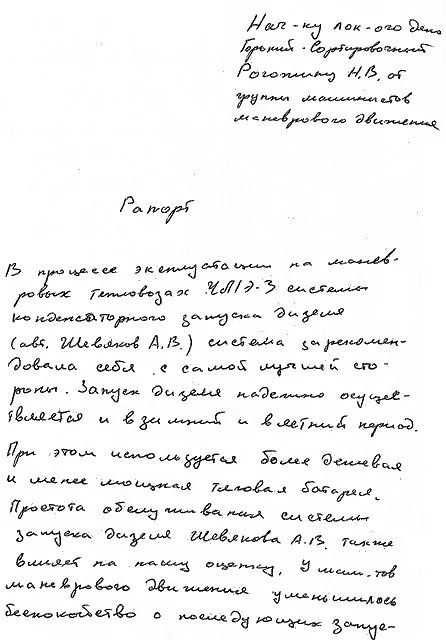 Нач-ку лок-ого депо
Горький-Сортировочный
Рогожину Н.В. от
группы машинистов
маневрового движения
Рапорт
В процессе эксплуатации на манев-
ровых тепловозах ЧМЭ-3 системы
конденсаторного запуска дизеля
(авт. Шевяков А.В.) система зарекомен-
довала себя с самой лучшей сто-
роны. Запуск дизеля надежно осущес-
твляется и в зимний и в летний период.
При этом используется более дешевая
и менее мощная тяговая батарея.
Простота обслуживания системы
запуска дизеля Шевякова А.В. также
влияет на нашу оценку. У маш-тов
маневрового движения уменьшилось
беспокойство о последующих запус-